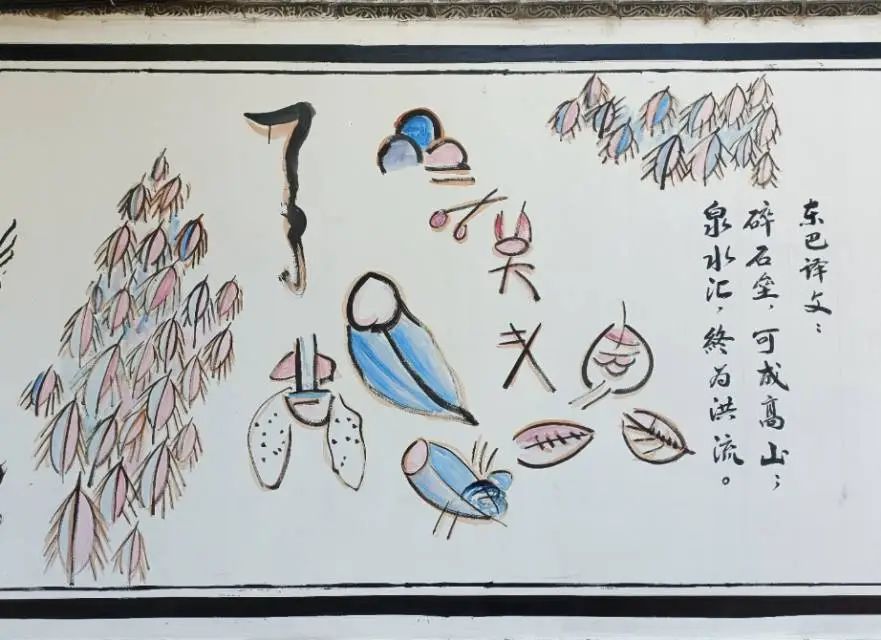 东巴译文：
碎石垒，可成高山；
泉水汇，终为洪流。